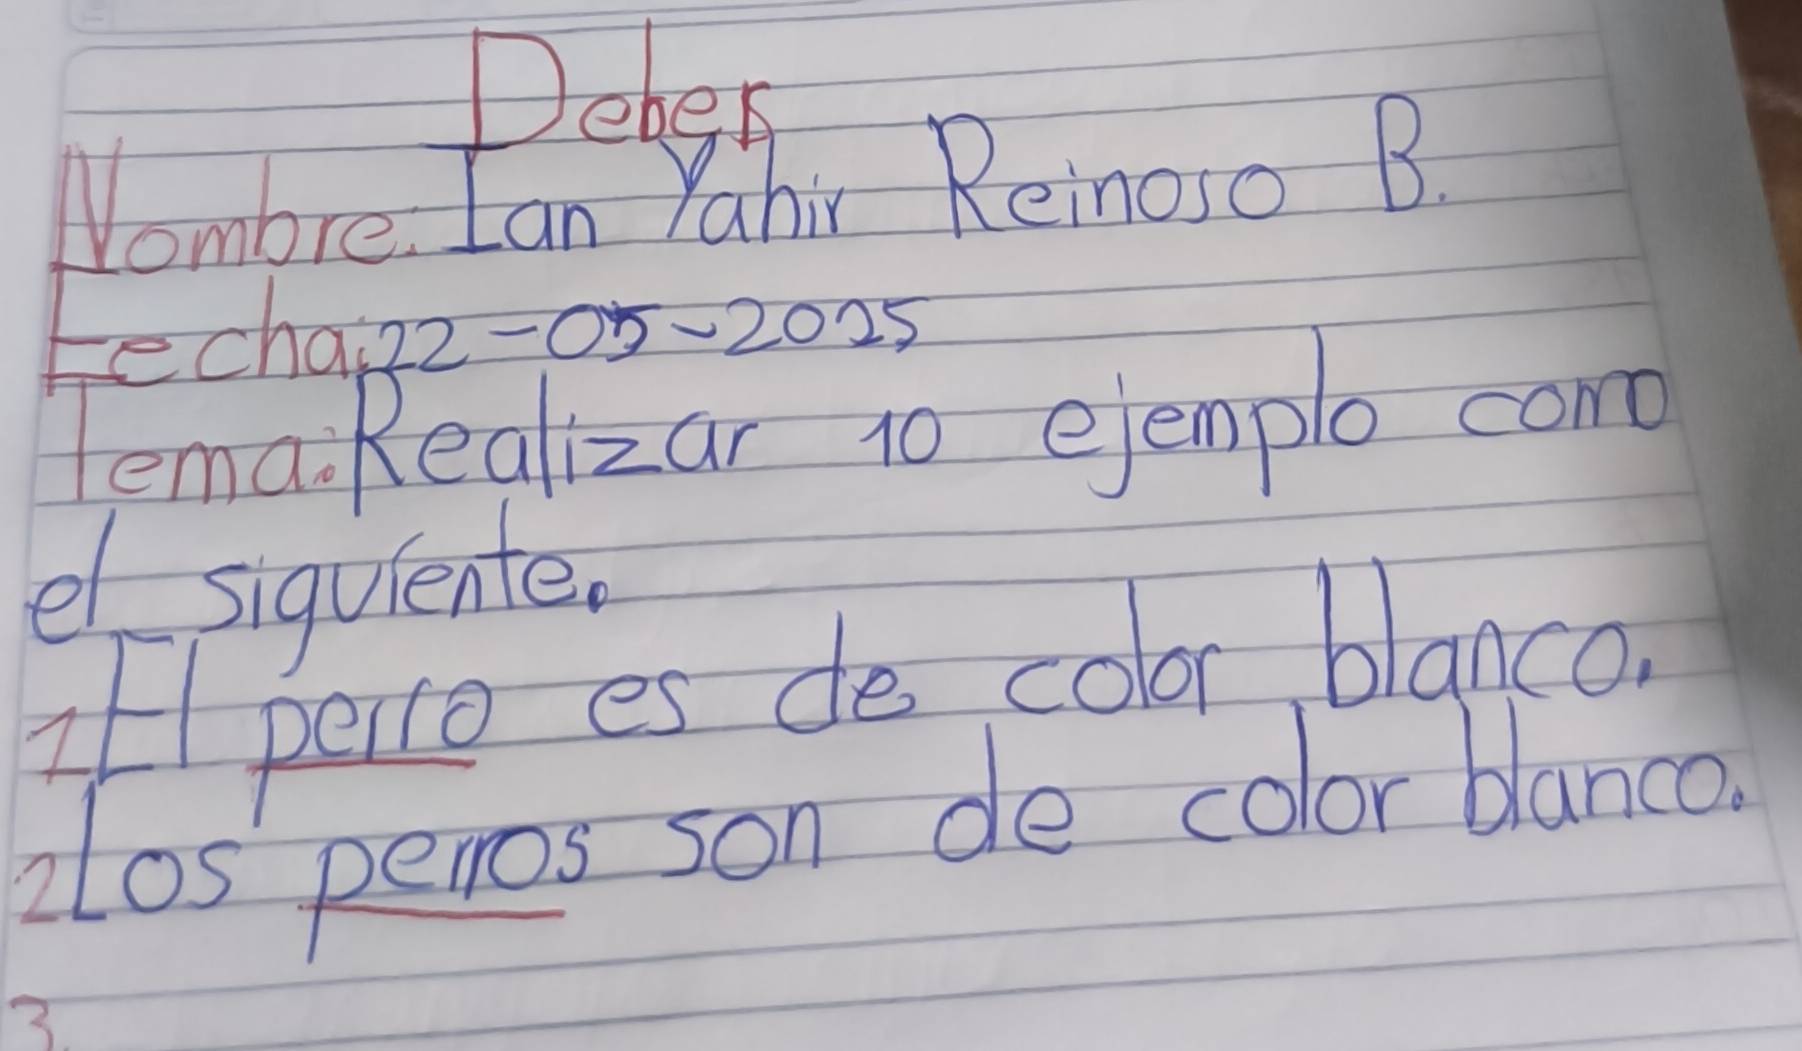 Deber
Nombre: Ian Yahir Reinoso B.
Fecha: 22-05-2025
Tema: Realizar 10 ejemplo como
el siguiente.
1 El perro es de color blanco.
2 Los perros son de color blanco.
3.